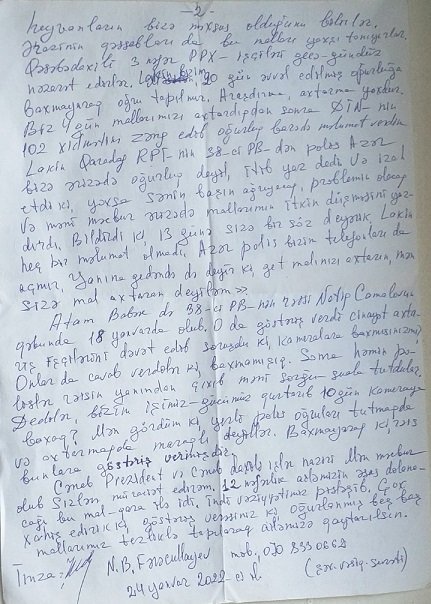 - 2 -
heyvanların bizə məxsus olduğunu bilirlər,
Ərazinin qəssabları da bu malları yaxşı tanıyırlar.
Qəsəbədaxili 3 nəfər PPX-işçiləri gecə-gündüz
nəzarət edirlər. 20 gün əvvəl edilmiş oğurluğa
baxmayaraq oğru tapılmır. Araşdırma, axtarma yoxdur.
Biz 4 gün mallarımızı axtardıqdan sonra DİN-nin
102 xidmətini zəng edib oğurluq barədə məlumat verdim.
Lakin Qaradağ RPİ-nin 38-ci PB-dən polis Azər
bizə ərizədə oğurluq deyil, itib yaz dedi və izah
etdi ki, yoxsa sənin başın ağrıyacaq, problemin olacaq
və məni məcbur ərizədə mallarımın itkin düşməsini yaz-
dırdı. Bildirdi ki, 13 günə sizə bir söz deyərik, Lakin
heç bir məlumat olmadı. Azər polis bizim telefonları da
açmır, yanına gedəndə də deyir ki get malınızı axtarın, mən
sizə mal axtaran deyiləm »
Atam Babək də 38-ci PB-nin rəisi Natiq Camalovun
qəbunda 18 yanvarda olub. O da göstəriş verdi cinayət axta-
rış işçilərini dəvət edib soruşdu ki, kameralara baxmısınızmı?
Onlar da cavab verdilər ki, baxmamışıq. Sonra həmin po-
lislər rəisin yanından çıxıb məni sorğu-suala tutdular.
Dedilər, bizim işimiz-gücümüz qurtarıb 10 gün kameraya
baxaq? Mən gördüm ki yerli polis oğruları tutmağda
və axtarmağda maraqlı deyillər. Baxmayaraq ki, rəis
bunlara göstəriş vermişdir.
Cənab Prezident və Cənab daxili işlər naziri Mən məcbur
olub Sizlərə müraciət edirəm. 12 nəfərlik ailəmizin əsas dolana-
cağı bu mal-qara ilə idi, indi vəziyyətimiz pisləşib. Çox
xahiş edirik ki, göstəriş verəsiniz ki oğurlanmış beş baş
mallarımız tezliklə tapılaraq ailəmizə qaytarılsın.
İmza:
N.B. Fərəcullayev mob: 070 8330668
24 yanvar 2022-ci il. (şəx. vəsiq. surəti)